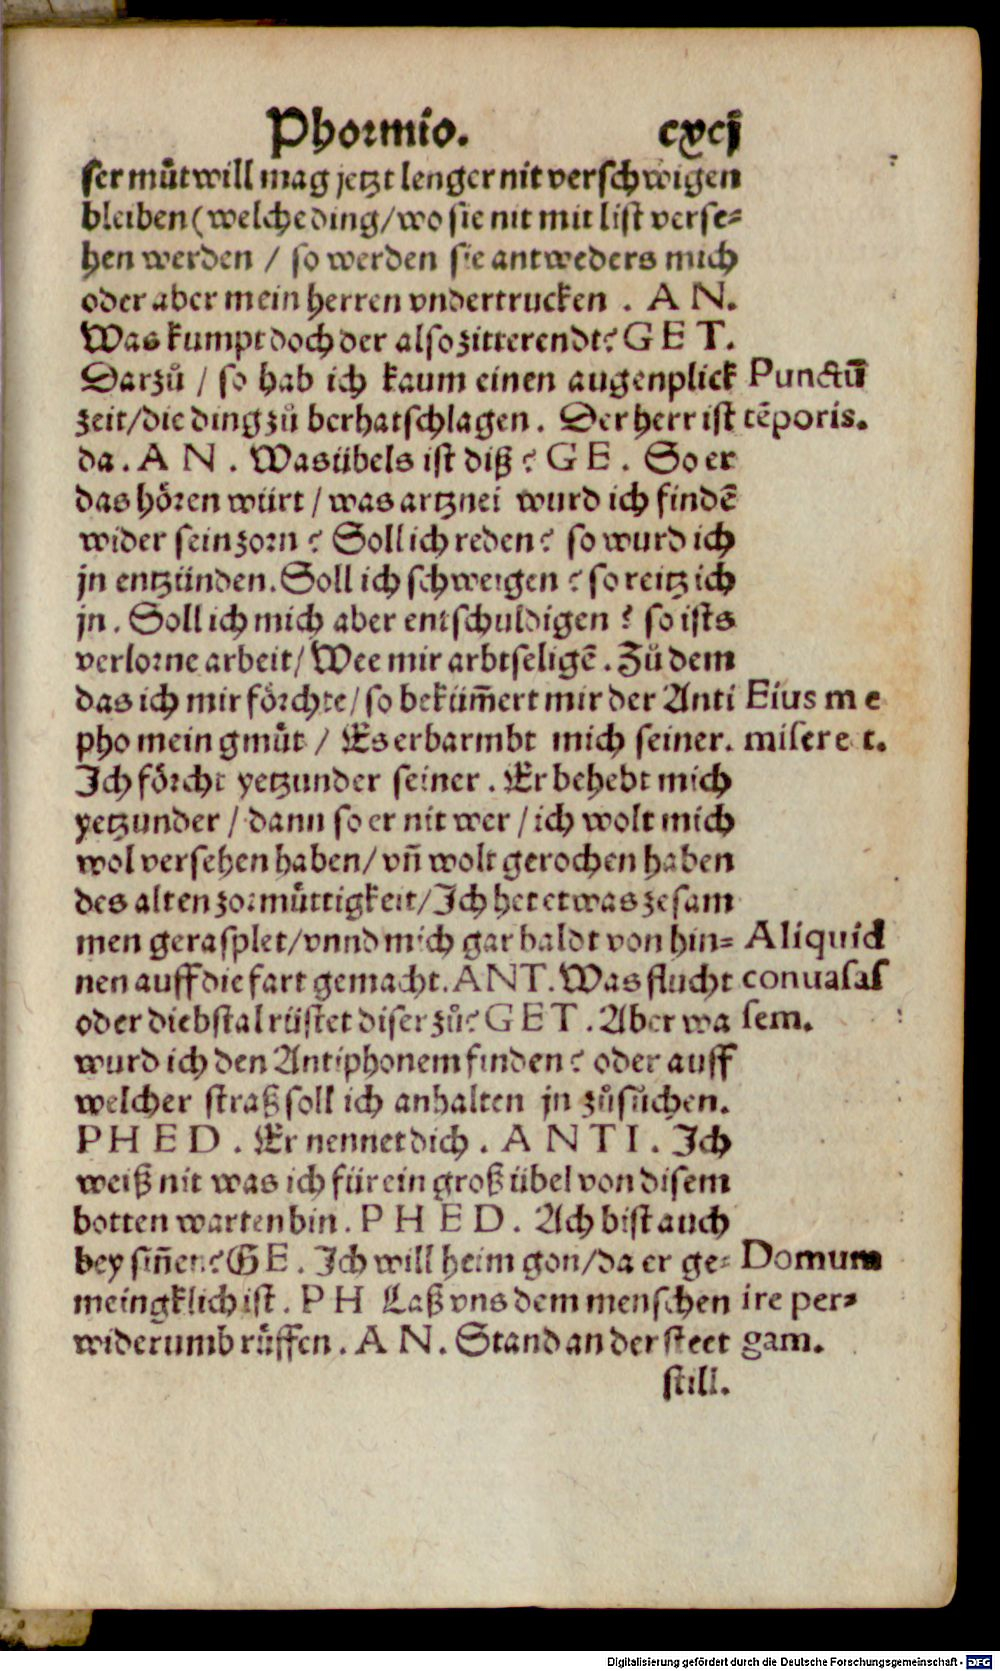 Phormio. cxcj
ser můtwill mag jetzt lenger nit verschwigen
bleiben (welche ding / wo sie nit mit list verse-
hen werden / so werden sie antweders mich
oder aber mein herren vndertrucken . A N.
Was kumpt doch der also zitterendt? G E T.
Darzů / so hab ich kaum einen augenplick
Punctū
zeit / die ding zů berhatschlagen . Der herr ist
tēporis.
da . A N . Was übels ist diß ? G E . So er
das hören würt / was artznei wurd ich findē
wider sein zorn ? Soll ich reden ? so wurd ich
jn entzünden. Soll ich schweigen ? so reitz ich
jn . Soll ich mich aber entschuldigen ? so ists
verlorne arbeit / Wee mir arbtseligē . Zů dem
das ich mir förchte / so bekūmert mir der Anti
Eius me
pho mein gmůt / Es erbarmbt mich seiner.
miseret.
Ich förcht yetzunder seiner . Er behebt mich
yetzunder / dann so er nit wer / ich wolt mich
wol versehen haben / vñ wolt gerochen haben
des alten zornmůttigkeit / Ich het etwas zesam
men gerasplet / vnnd mich gar baldt von hin-
Aliquid
nen auff die fart gemacht. ANT. Was flucht
conuasas
oder diebstal rüstet diser zů? G E T . Aber wa
sem.
wurd ich den Antiphonem finden ? oder auff
welcher straß soll ich anhalten jn zůsůchen.
P H E D . Er nennet dich . A N T I . Ich
weiß nit was ich für ein groß übel von disem
botten warten bin . P H E D . Ach bist auch
bey siñen? G E . Ich will heim gon / da er ge-
Domum
meingklich ist . P H Laß vns dem menschen
ire per-
widerumb růffen . A N . Stand an der steet
gam.
still.
Digitalisierung gefördert durch die Deutsche Forschungsgemeinschaft - DFG